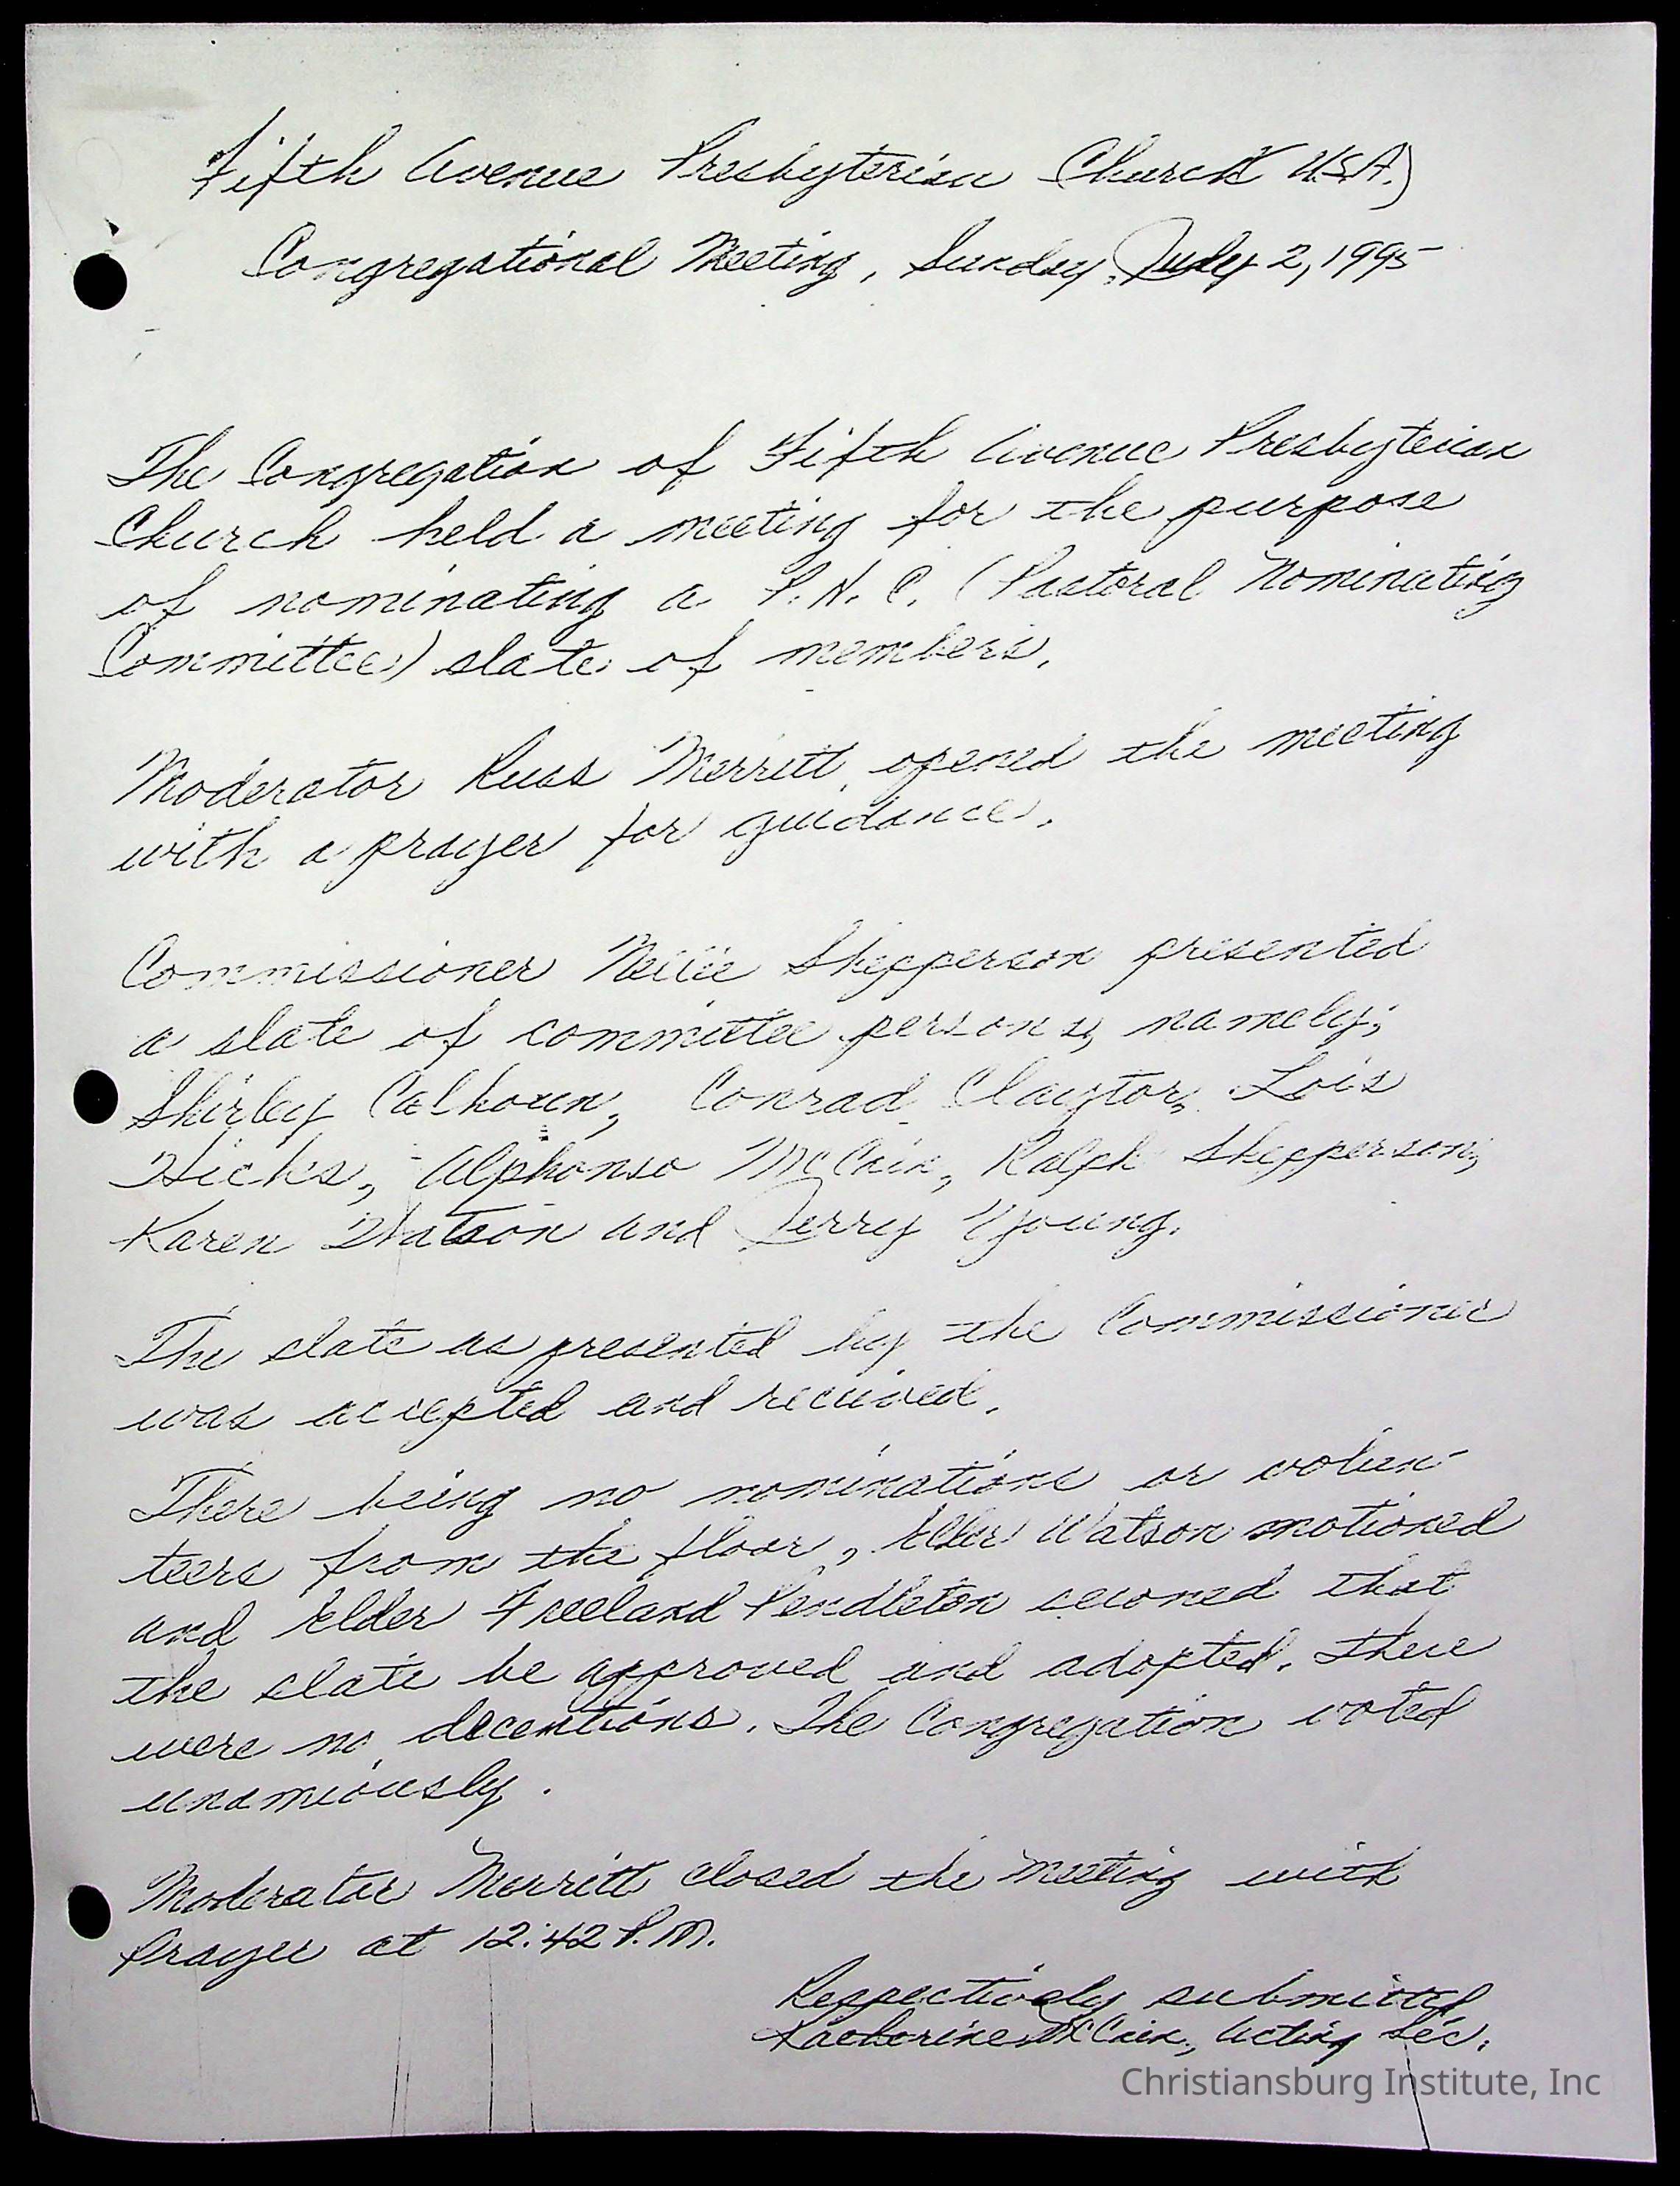 Fifth Avenue Presbyterian Church USA)
Congregational Meeting, Sunday, July 2, 1995
The Congregation of Fifth Avenue Presbyterian
Church held a meeting for the purpose
of nominating a P.N.C. (Pastoral Nominating
Committee) slate of members.
Moderator Russ Merritt, opened the meeting
with a prayer for guidance.
Commissioner Nellie Shepperson presented
a slate of committee persons, namely;
Shirley Calhoun, Conrad Claytor, Lois
Hicks, Alphonso McCain, Ralph Shepperson,
Karen Watson and Jerry Young.
The slate as presented by the Commissioner
was accepted and received.
There being no nominations or volun-
teers from the floor, Elder Watson motioned
and Elder Freeland Pendleton seconed that
the slate be approved and adopted. There
were no decentions. The Congregation voted
unamiously.
Moderator Merritt closed the meeting with
Prayer at 12:42 P.M.
Respectively submitted
Katherine McCain, Acting Sec.
Christiansburg Institute, Inc